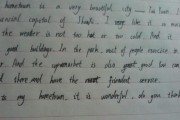 hometown is a very beautiful city — Tai Yuan. I
capital of Shanxi. I like it so much
the weather is not too hot or too cold. And it
good buildings. In the park, most of people exercise in
. And the supermarket is also great and
there and have the most friendest service.
to my hometown, it is wonderful, do you think